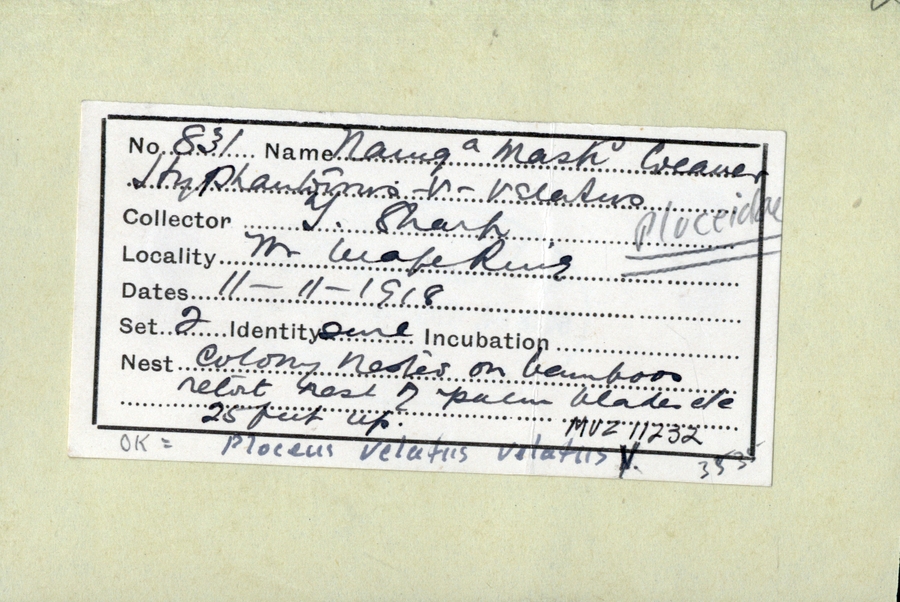 No. 831 Name Namqa Mask Weaver
Hyphantornis - v - velatus
Ploceidae
Collector T. Sharp
Locality Nr Mafeking
Dates 11 - 11 - 1918
Set 2 Identity sure Incubation
Nest Colony nested on bamboos
retort nest of palm blades etc
25 feet up.
MVZ 11232
OK = Ploceus velatus velatus V.
3535